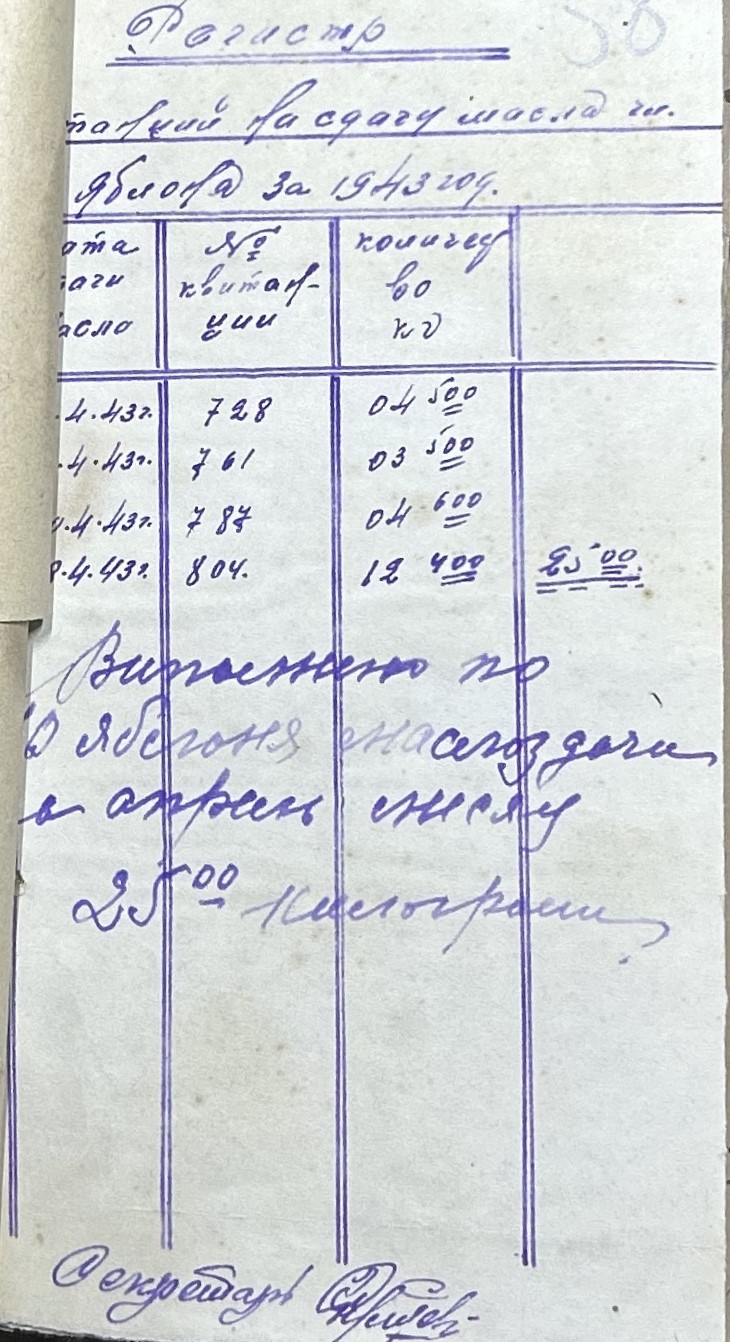 Регистр 58
танций на сдачу масла чл.
яблона за 1943 год.
ата № количес
дачи квитан- во
асла ции кг
.4.43г. 728 04 500
.4.43г. 761 03 500
.4.43г. 787 04 600
8.4.43г. 804. 12 400 25 00.
Выполнено по
яблоня маслоздачи
в апрель месяц
25 00 килограмм
Секретарь